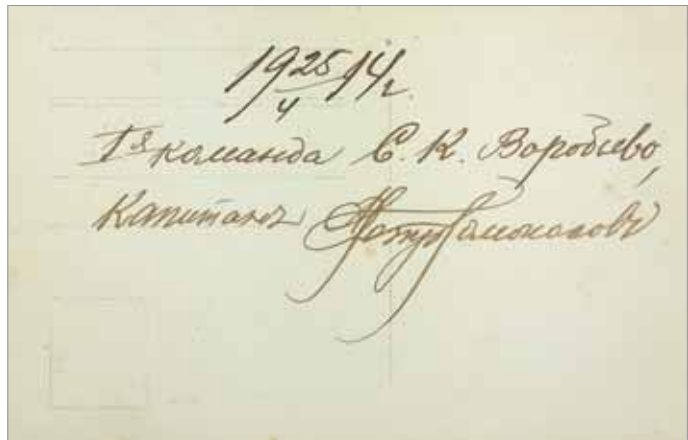 19 25/4 14 г.
Iя команда С. К. Воробьево,
Капитанъ